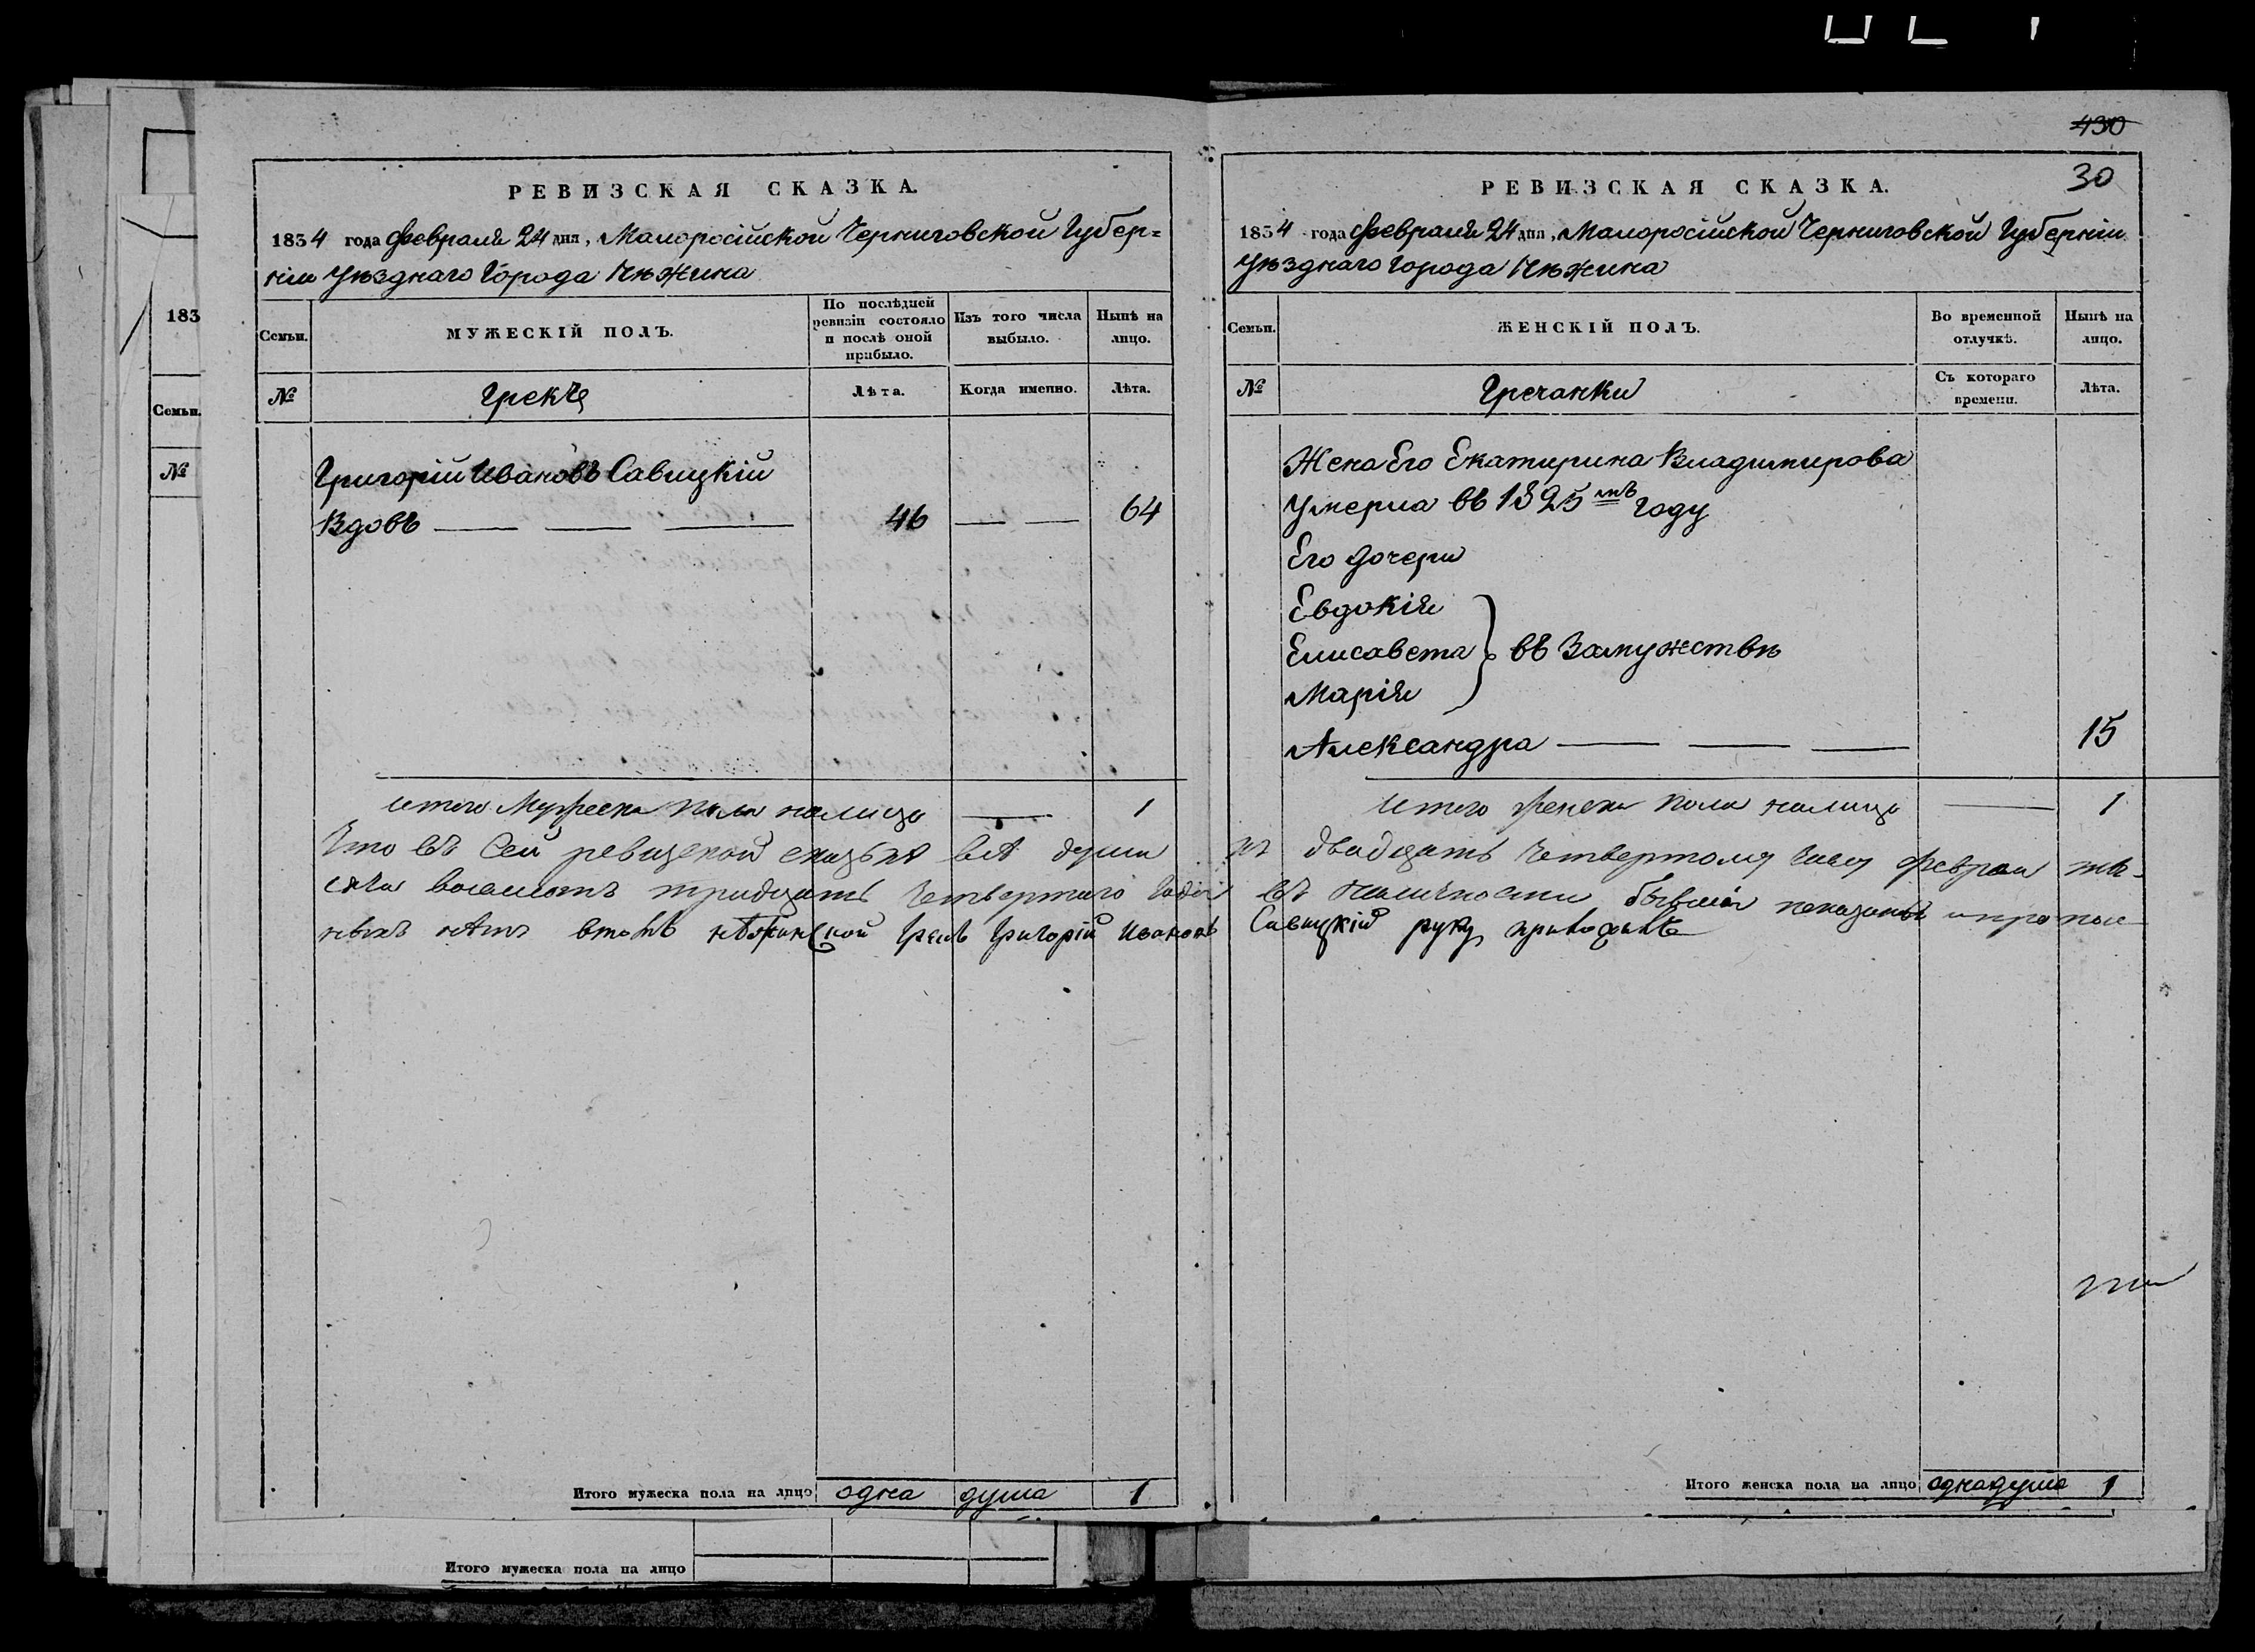 РЕВИЗСКАЯ СКАЗКА.
1834 года Февраля 24 дня, Малоросійской Черниговской Губер=
ніи Уѣзднаго Города Нѣжина
Семьи.
МУЖЕСКІЙ ПОЛЪ.
По послѣдней
ревизіи состояло
и послѣ оной
прибыло.
Изъ того числа
выбыло.
Нынѣ на
лицо.
№
Лѣта.
Когда именно.
Лѣта.
Григорій Ивановъ Савицкій
Вдовъ 46 64
итого Мужеска пола налицо 1
Итого мужеска пола на лицо одна душа 1
430
30
РЕВИЗСКАЯ СКАЗКА.
1834 года Февраля 24 дня, Малоросійской Черниговской Губерніи
Уѣзднаго Города Нѣжина
Семьи.
ЖЕНСКІЙ ПОЛЪ.
Во временной
отлучкѣ.
Нынѣ на
лицо.
№
Гречанки
Съ котораго
времени.
Лѣта.
Жена Его Екатирина Владимирова
Умерла въ 1825мъ Году
Его Дочери
Евдокія
Елисавета въ Замужствѣ
Марія
Александра 15
итого женска пола налицо 1
Что въ Сей ревизской сказкѣ всѣ души къ двадцать Четвертому Числу Февраля мѣ-
сяца восемсотъ тридцать Четвертого Года въ наличности бывшія показаны и пропис
ныхъ нѣтъ втомъ нѣжинской Грекъ Григорій Ивановъ Савицкій руку приложилъ
Итого женска пола на лицо одна душа 1
183
Семьи.
№
Итого мужеска пола на лицо